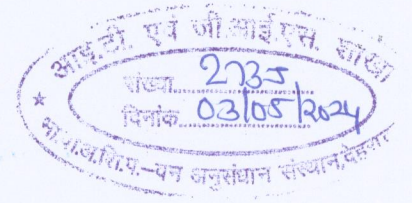 आई.टी. एवं जी.आई.एस. शाखा
संख्या 2735
दिनांक 03/05/2024
भा.वा.अ.शि.प.–वन अनुसंधान संस्थान, देहरादून